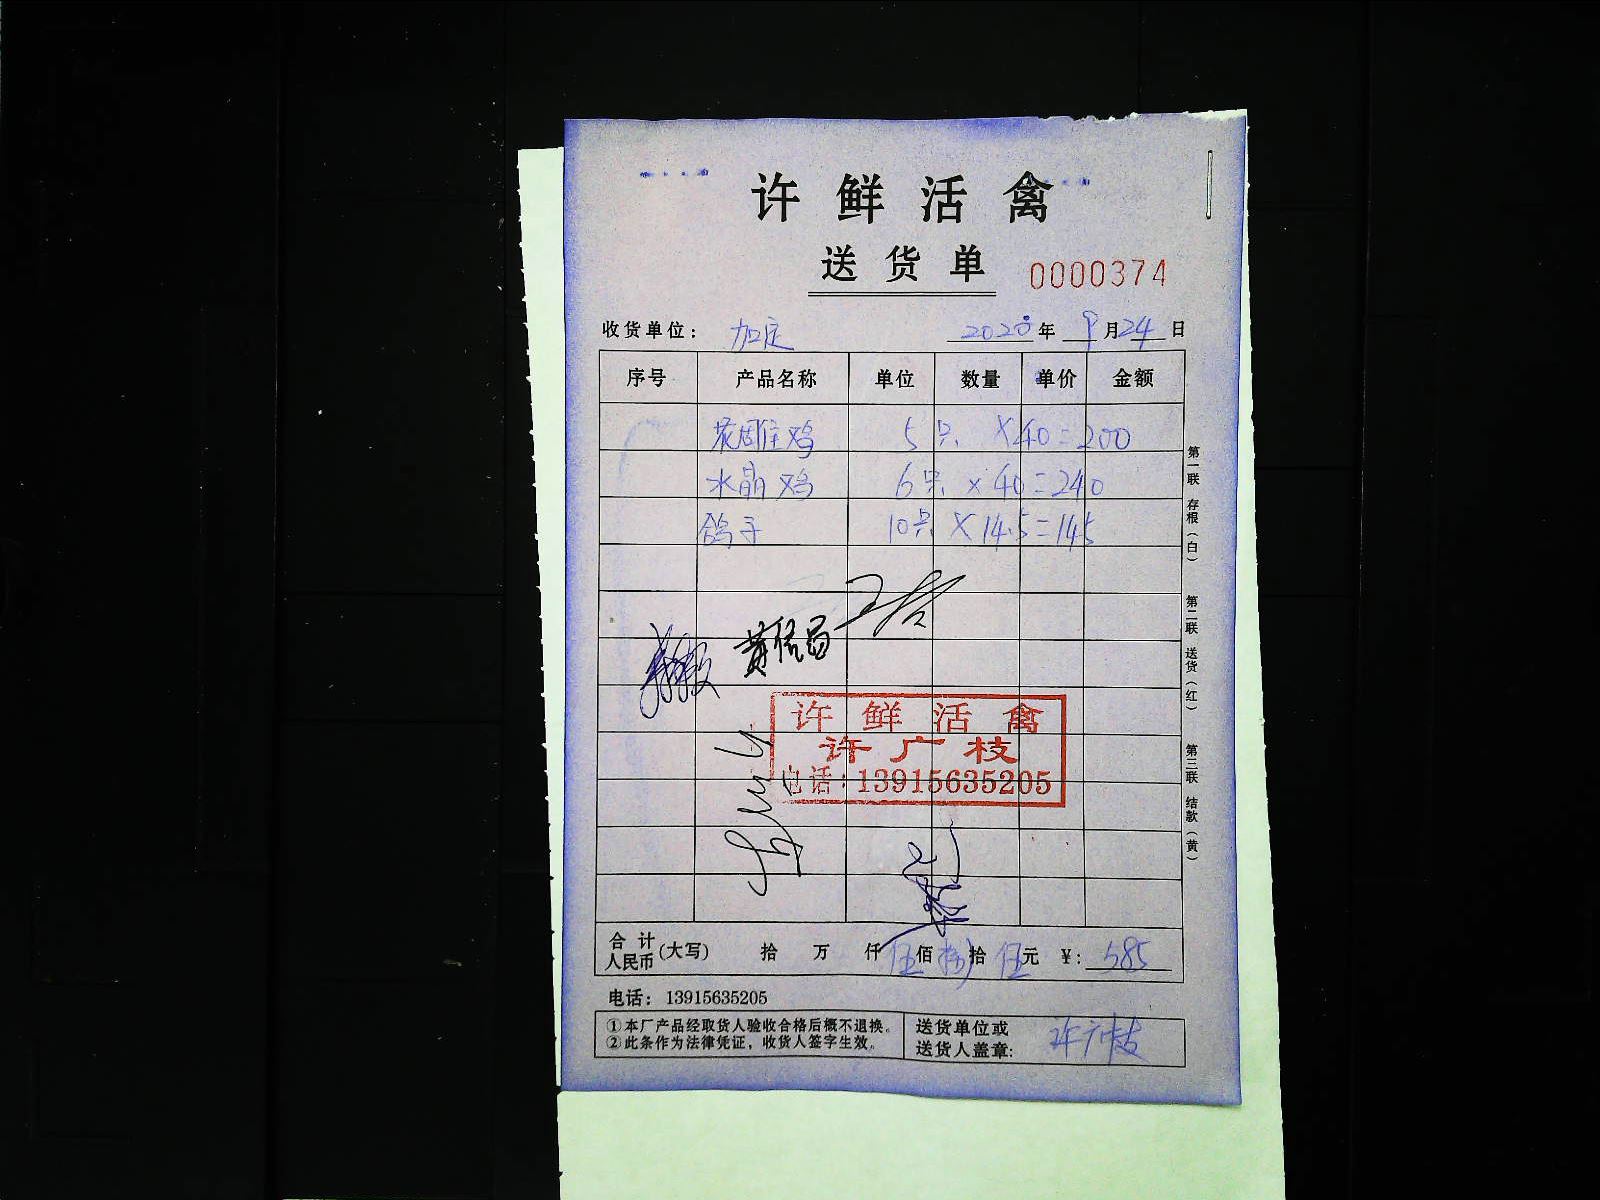 许鲜活禽
送货单 0000374
收货单位： 加定 2020年 9月24日
序号 产品名称 单位 数量 单价 金额
鸡 5只 ×40=200
水晶鸡 6只 ×40=240
鸽子 10只 ×14.5=145
第一联 存根（白）
第二联 送货（红）
第三联 结款（黄）
黄信昌
许鲜活禽
许广枝
电话：13915635205
合计人民币(大写) 拾 万 仟 伍佰捌拾伍元 ¥：585
电话： 13915635205
①本厂产品经取货人验收合格后概不退换。
②此条作为法律凭证，收货人签字生效。
送货单位或
送货人盖章： 许广枝